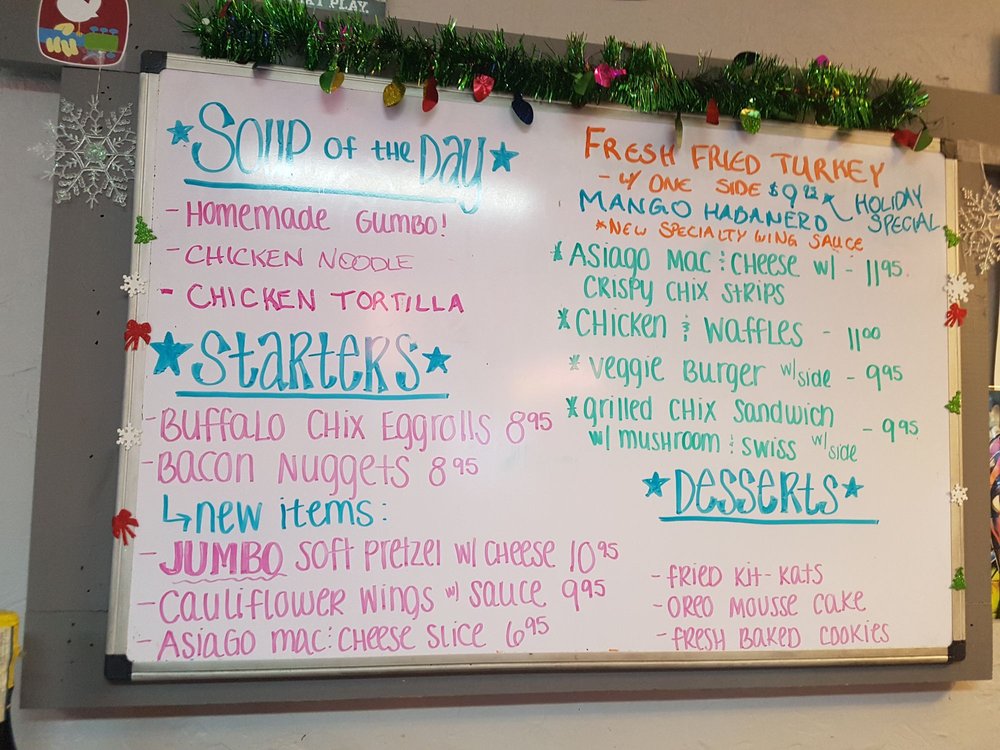 PLAY.
*SOUP OF the DAY*
- Homemade Gumbo!
- CHICKEN NOODLE
- CHICKEN TORTILLA
*Starters*
- Buffalo Chix Eggrolls 8 95
- Bacon Nuggets 8 95
↳ new items:
- JUMBO Soft Pretzel w/ Cheese 10 95
- Cauliflower Wings w/ Sauce 9 95
- Asiago mac & cheese slice 6 95
FRESH FRIED TURKEY
- W/ ONE SIDE
HOLIDAY SPECIAL
MANGO HABANERO
*NEW SPECIALTY WING SAUCE
* ASIAGO MAC & CHEESE w/ - 11 95
CRISPY CHIX STRIPS
* Chicken & Waffles - 11 00
* Veggie Burger w/side - 9 95
* grilled chix sandwich - 9 95
w/ mushroom & swiss w/side
*Desserts*
- Fried Kit-Kats
- Oreo Mousse Cake
- Fresh Baked Cookies